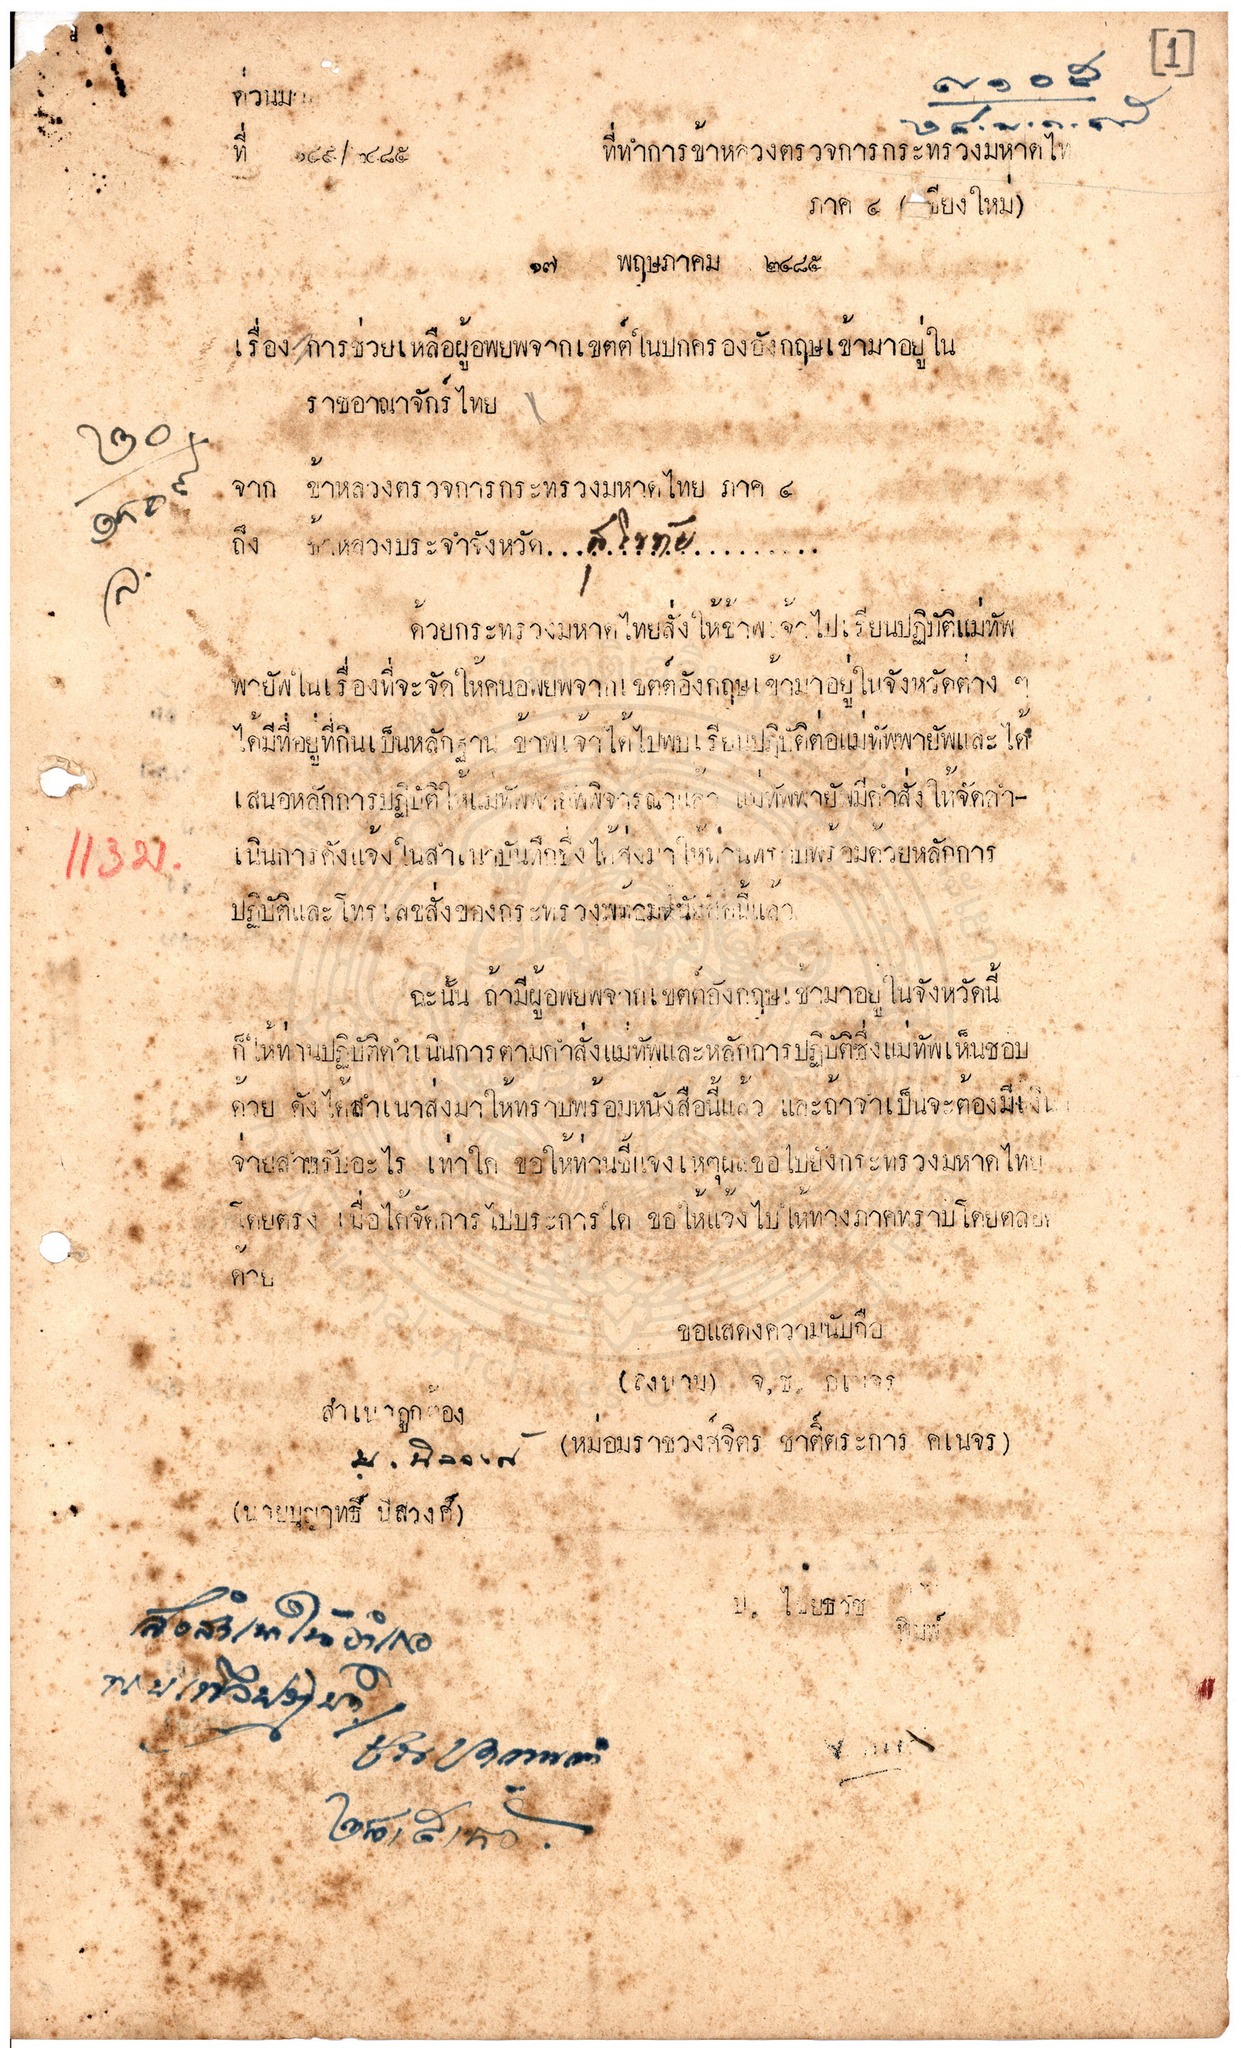 [1]
ด่วนมาก
ที่ ๑๔๙/๒๔๘๕ ที่ทำการข้าหลวงตรวจการกระทรวงมหาดไทย
ภาค ๔ (เชียงใหม่)
๑๗ พฤษภาคม ๒๔๘๕
เรื่อง การช่วยเหลือผู้อพยพจากเขตต์ในปกครองอังกฤษเข้ามาอยู่ใน
ราชอาณาจักร์ไทย
จาก ข้าหลวงตรวจการกระทรวงมหาดไทย ภาค ๔
ถึง ข้าหลวงประจำจังหวัด...สุโขทัย..........
ด้วยกระทรวงมหาดไทยสั่งให้ข้าพเจ้าไปเรียนปฏิบัติแม่ทัพ
พายัพในเรื่องที่จะจัดให้คนอพยพจากเขตต์อังกฤษเข้ามาอยู่ในจังหวัดต่าง ๆ
ได้มีที่อยู่ที่กินเป็นหลักฐาน ข้าพเจ้าได้ไปพบเรียนปฏิบัติต่อแม่ทัพพายัพและได้
เสนอหลักการปฏิบัติให้แม่ทัพพายัพพิจารณาแล้ว แม่ทัพพายัพมีคำสั่งให้จัดดำ-
เนินการดังแจ้งในสำเนาบันทึกซึ่งได้ส่งมาให้ท่านทราบพร้อมด้วยหลักการ
ปฏิบัติและโทรเลขสั่งของกระทรวงพร้อมหนังสือนี้แล้ว
11321.
ฉะนั้น ถ้ามีผู้อพยพจากเขตต์อังกฤษเข้ามาอยู่ในจังหวัดนี้
ก็ให้ท่านปฏิบัติดำเนินการตามคำสั่งแม่ทัพและหลักการปฏิบัติซึ่งแม่ทัพเห็นชอบ
ด้วย ดังได้สำเนาส่งมาให้ทราบพร้อมหนังสือนี้แล้ว และถ้าจำเป็นจะต้องมีเงิน
จ่ายสำหรับอะไร เท่าใด ขอให้ท่านชี้แจงเหตุผลขอไปยังกระทรวงมหาดไทย
โดยตรง เมื่อได้จัดการไปประการใด ขอให้แจ้งไปให้ทางภาคทราบโดยตลอด
ด้วย
ขอแสดงความนับถือ
(ลงนาม) จ.ช. คเนจร
(หม่อมราชวงศ์จิตร ชาติ์ตระการ คเนจร)
สำเนาถูกต้อง
(นายบุญฤทธิ์ นิสวงศ์)
พิมพ์
ส่งสำเนาให้อำเภอ